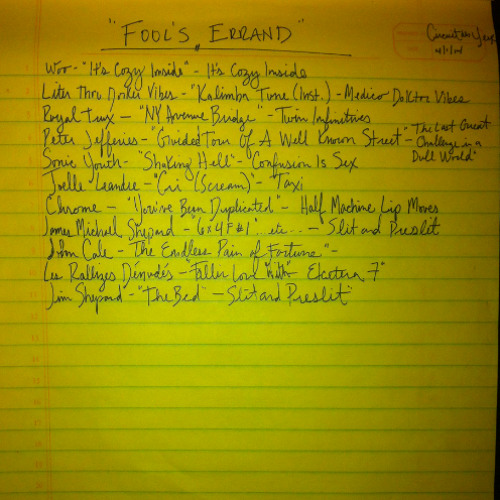 "FOOL'S ERRAND"
4/1/14
Woo - "It's Cozy Inside" - It's Cozy Inside
Vibes - "Kalimba Tune (Inst.) - Medico Doktor Vibes
Royal Trux - "NY Avenue Bridge" - Twin Infinitives
Peter Jefferies - "Guided Tour Of A Well Known Street" - "The Last Great Challenge in a Dull World"
Sonic Youth - "Shaking Hell" - Confusion Is Sex
Joelle Leandre - "Cri (Scream)" - "Taxi
Chrome - "You've Been Duplicated" - Half Machine Lip Moves
James Michael Shepard - "6x4F#1"... etc... - Slit and Preslit
John Cale - "The Endless Pain of Fortune" -
Les Rallizes Dénudés - "Fallin Love With" Electera 7"
Jim Shepard - "The Bed" - Slit and Preslit